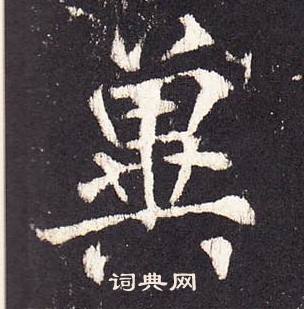 冀
词典网